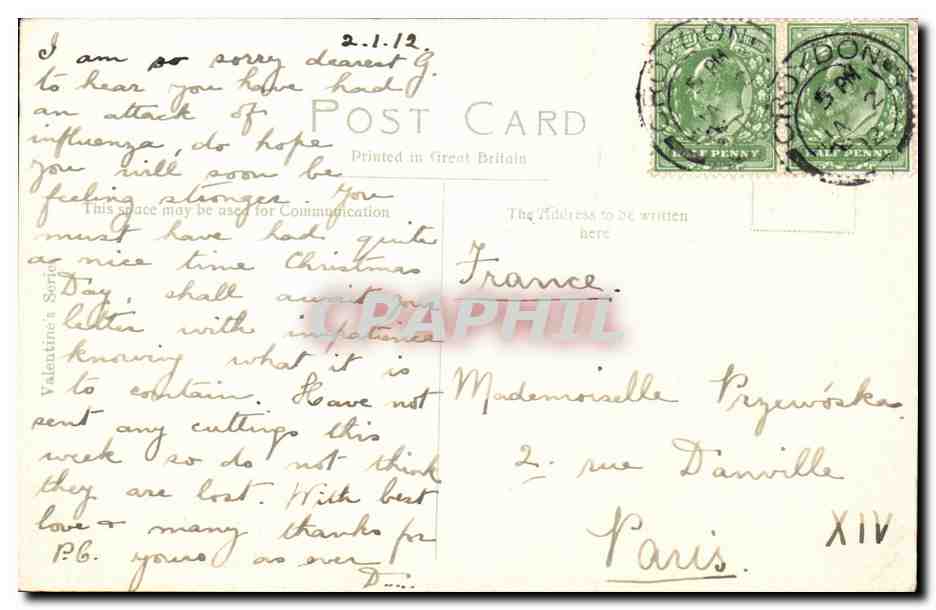 2.1.12.
I am so sorry dearest G.
to hear you have had
an attack of
influenza, do hope
you will soon be
feeling stronger. You
must have had quite
a nice time Christmas
Day, shall await your
letter with impatience
knowing what it is
to contain. Have not
sent any cuttings this
week so do not think
they are lost. With best
love & many thanks for
P.C. yours as ever
D....
POST CARD
Printed in Great Britain
This space may be used for Communication
The Address to be written
here
Valentine's Series
France.
Mademoiselle Przewóska
2. rue Danville
Paris.
XIV
CROYDON
HALF PENNY
CROYDON
HALF PENNY
CPAPHIL